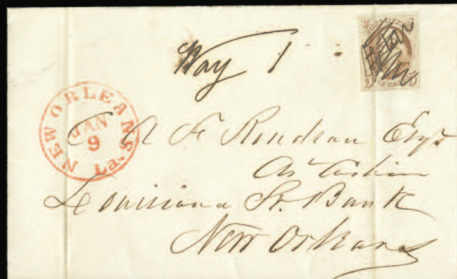 Way 1
NEW ORLEANS La.
JAN
9
A F Rondeau Esqr
As Cashier
Louisiana St. Bank
New Orleans